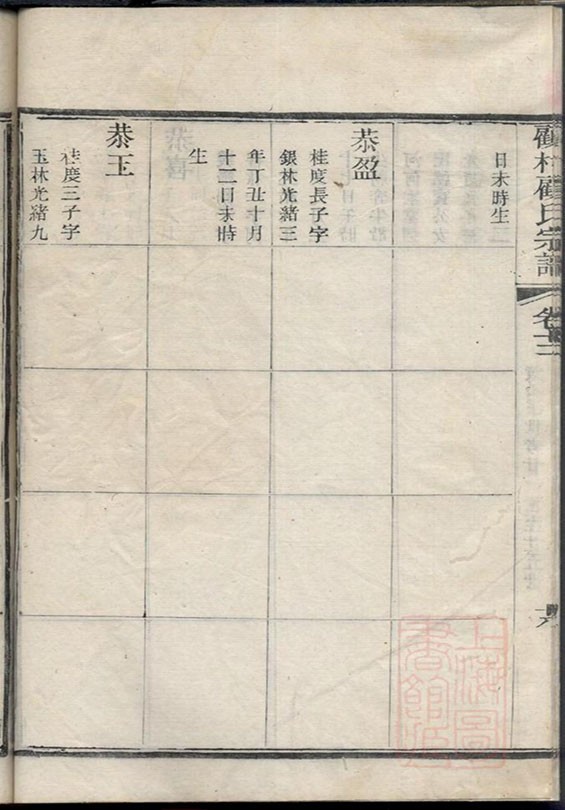 顧村顧氏宗譜
卷十三
日未時生
恭盈
桂度長子字
銀林光緒三
年丁丑十月
十二日未時
生
恭玉
桂度三子字
玉林光緒九
上海圖
書館藏